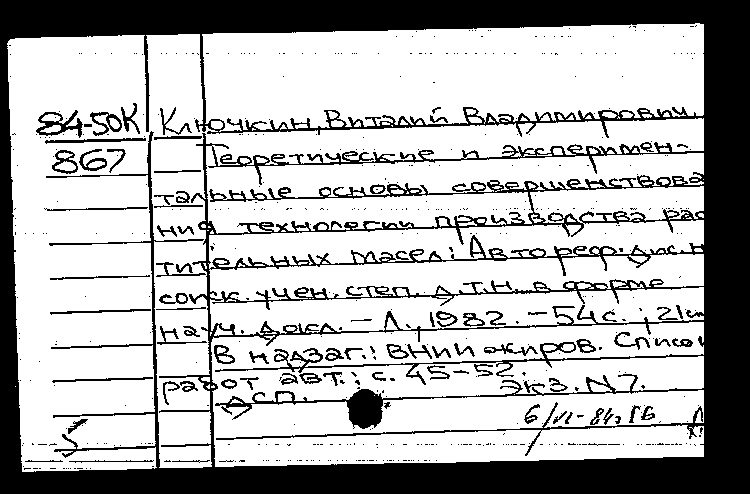 84-50К Ключкин, Виталий Владимирович.
867 Теоретические и эксперимен-
тальные основы совершенствова
ния технологии производства рас
тительных масел: Автореф. дис. н
соиск. учен. степ. д.т.н. в форме
науч. докл. - Л., 1982. - 54с.; 21см
В надзаг.: ВНИИ жиров. Списо
работ авт.: с. 45-52.
ДСП. Экз. N7.
6/VI-84г ГБ
5